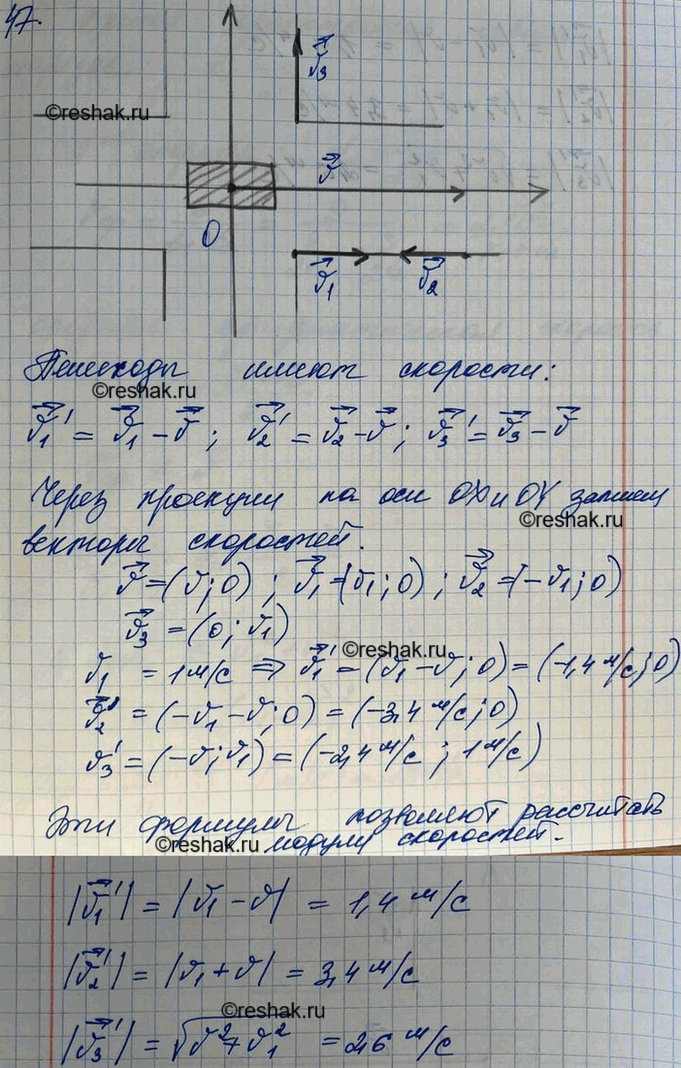 47.
v⃗₃
©reshak.ru
v⃗
O
v⃗₁ v⃗₂
Пешеходы имеют скорости:
©reshak.ru
v⃗₁' = v⃗₁ - v⃗ ; v⃗₂' = v⃗₂ - v⃗ ; v⃗₃' = v⃗₃ - v⃗
Через проекции на оси OX и OY запишем
©reshak.ru
векторы скоростей.
v⃗ = (v; 0) ; v⃗₁ = (v₁; 0) ; v⃗₂ = (-v₁; 0)
v⃗₃ = (0; v₁)
©reshak.ru
v₁ = 1 м/с ⇒ v⃗₁' = (v₁ - v; 0) = (-1,4 м/с; 0)
v⃗₂' = (-v₁ - v; 0) = (-3,4 м/с; 0)
v₃' = (-v; v₁) = (-2,4 м/с ; 1 м/с)
Эти формулы позволяют рассчитать
©reshak.ru модули скоростей.
|v⃗₁'| = |v₁ - v| = 1,4 м/с
|v⃗₂'| = |v₁ + v| = 3,4 м/с
©reshak.ru
|v⃗₃'| = √(v² + v₁²) = 2,6 м/с